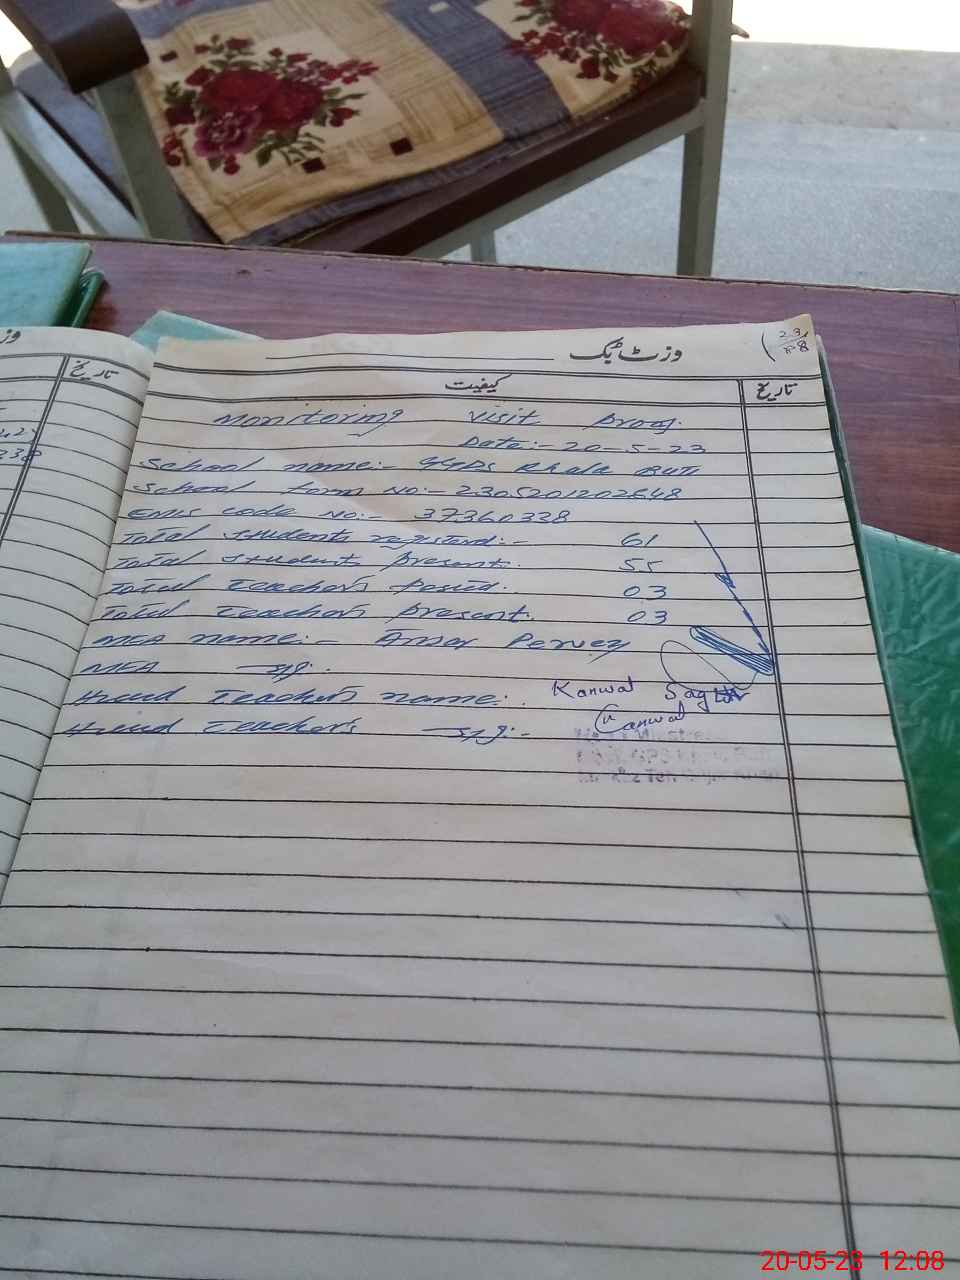 وزٹ بک
کیفیت
تاریخ
تاریخ
Monitoring Visit Proof
Date:- 20-5-23
School name:- GGPS Khala Buti
School form No:- 2305201202648
EMIS code No:- 37360338
Total students registerd:- 61
Total students present. 55
Total teachers Posted. 03
Total teachers present. 03
MEA name:- Ansar Pervez
MEA sig:
Head teachers name: Kanwal
Head teachers sig:- Kanwal
20-05-23 12:08